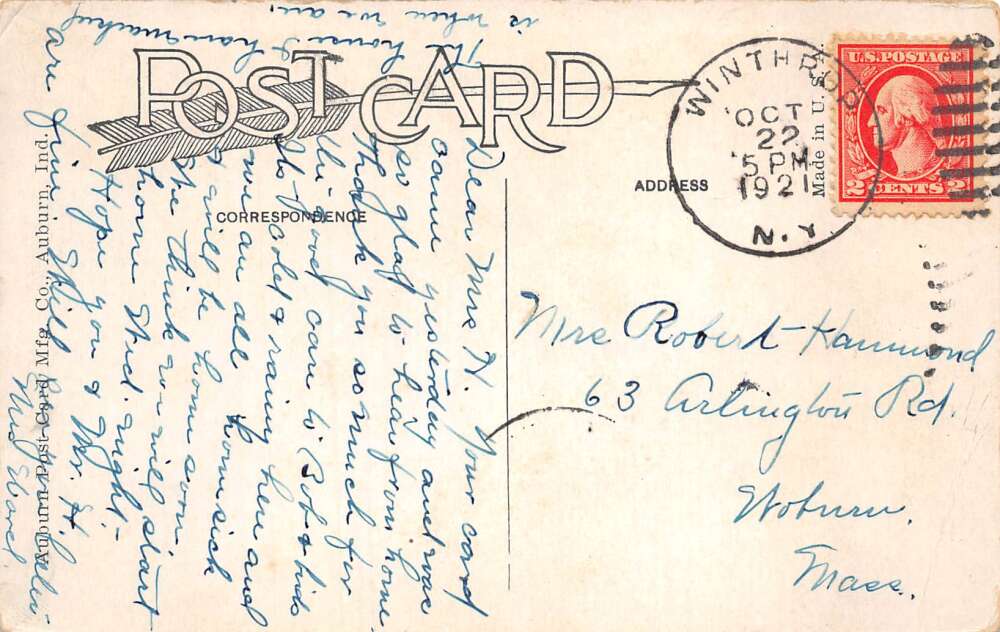 POST CARD
CORRESPONDENCE
ADDRESS
Made in U.S.A.
U.S. POSTAGE
2 CENTS 2
WINTHROP
OCT
22
5 PM
1921
N.Y.
Mrs Robert Hammond
63 Arlington Rd.
Woburn.
Mass.
Dear Mrs H. Your card
came yesterday and was
so glad to hear from home
thank you so much for
the good care to Bob & kids
Its cold & raining here and
we are all homesick
& will be home soon.
She think we will start
home Wed. night.
Hope you & Mr. H.
are fine
Mrs
The house I have marked
is where we are.
Auburn Post Card Mfg. Co., Auburn, Ind.